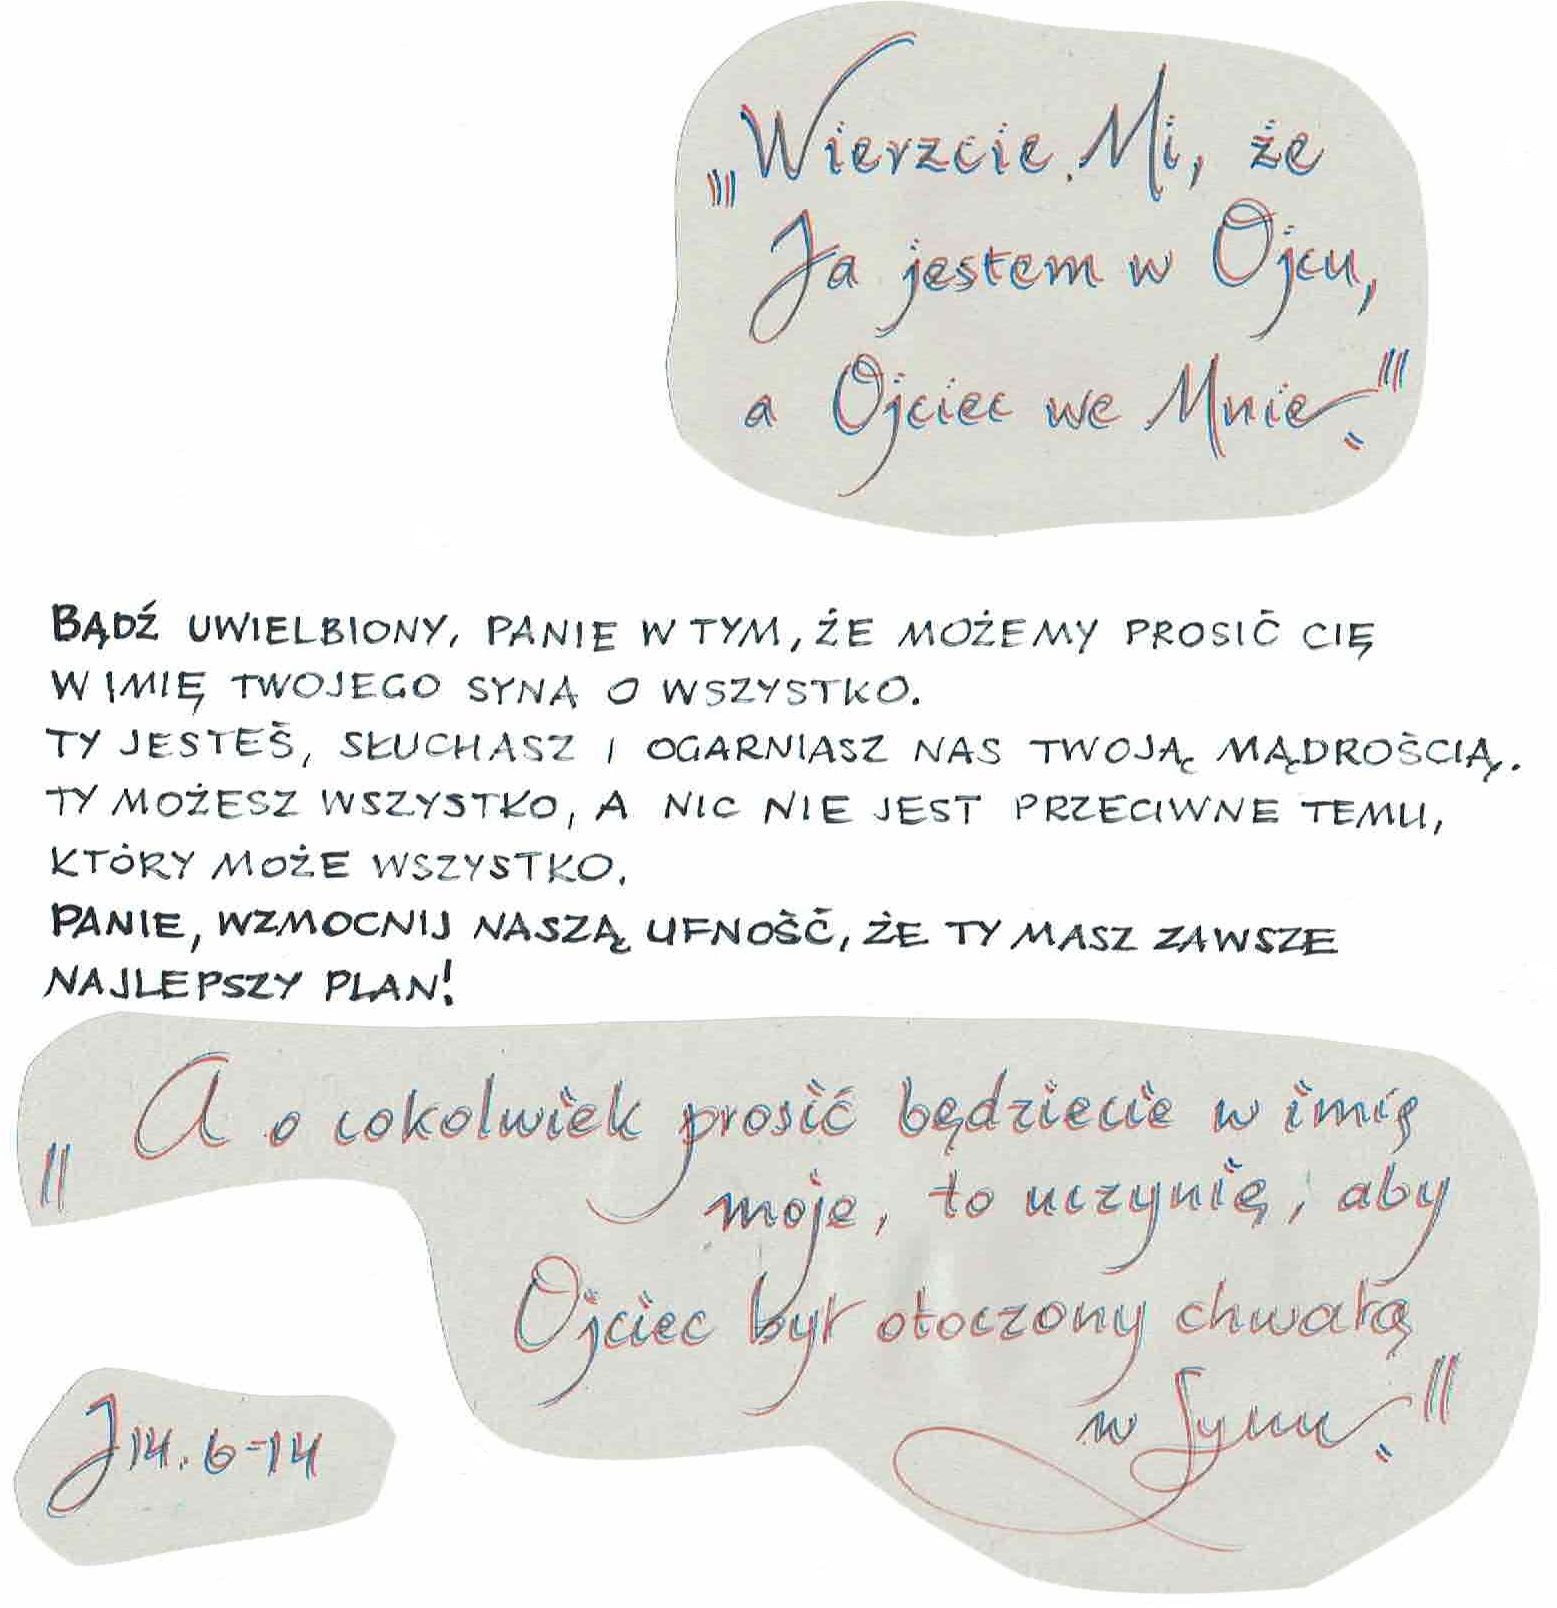 „Wierzcie Mi, że
Ja jestem w Ojcu,
a Ojciec we Mnie."
BĄDŹ UWIELBIONY, PANIE W TYM, ŻE MOŻEMY PROSIĆ CIĘ
W IMIĘ TWOJEGO SYNA O WSZYSTKO.
TY JESTEŚ, SŁUCHASZ I OGARNIASZ NAS TWOJĄ MĄDROŚCIĄ.
TY MOŻESZ WSZYSTKO, A NIC NIE JEST PRZECIWNE TEMU,
KTÓRY MOŻE WSZYSTKO.
PANIE, WZMOCNIJ NASZĄ UFNOŚĆ, ŻE TY MASZ ZAWSZE
NAJLEPSZY PLAN!
„A o cokolwiek prosić będziecie w imię
moje, to uczynię, aby
Ojciec był otoczony chwałą
w Synu."
J 14. 6-14